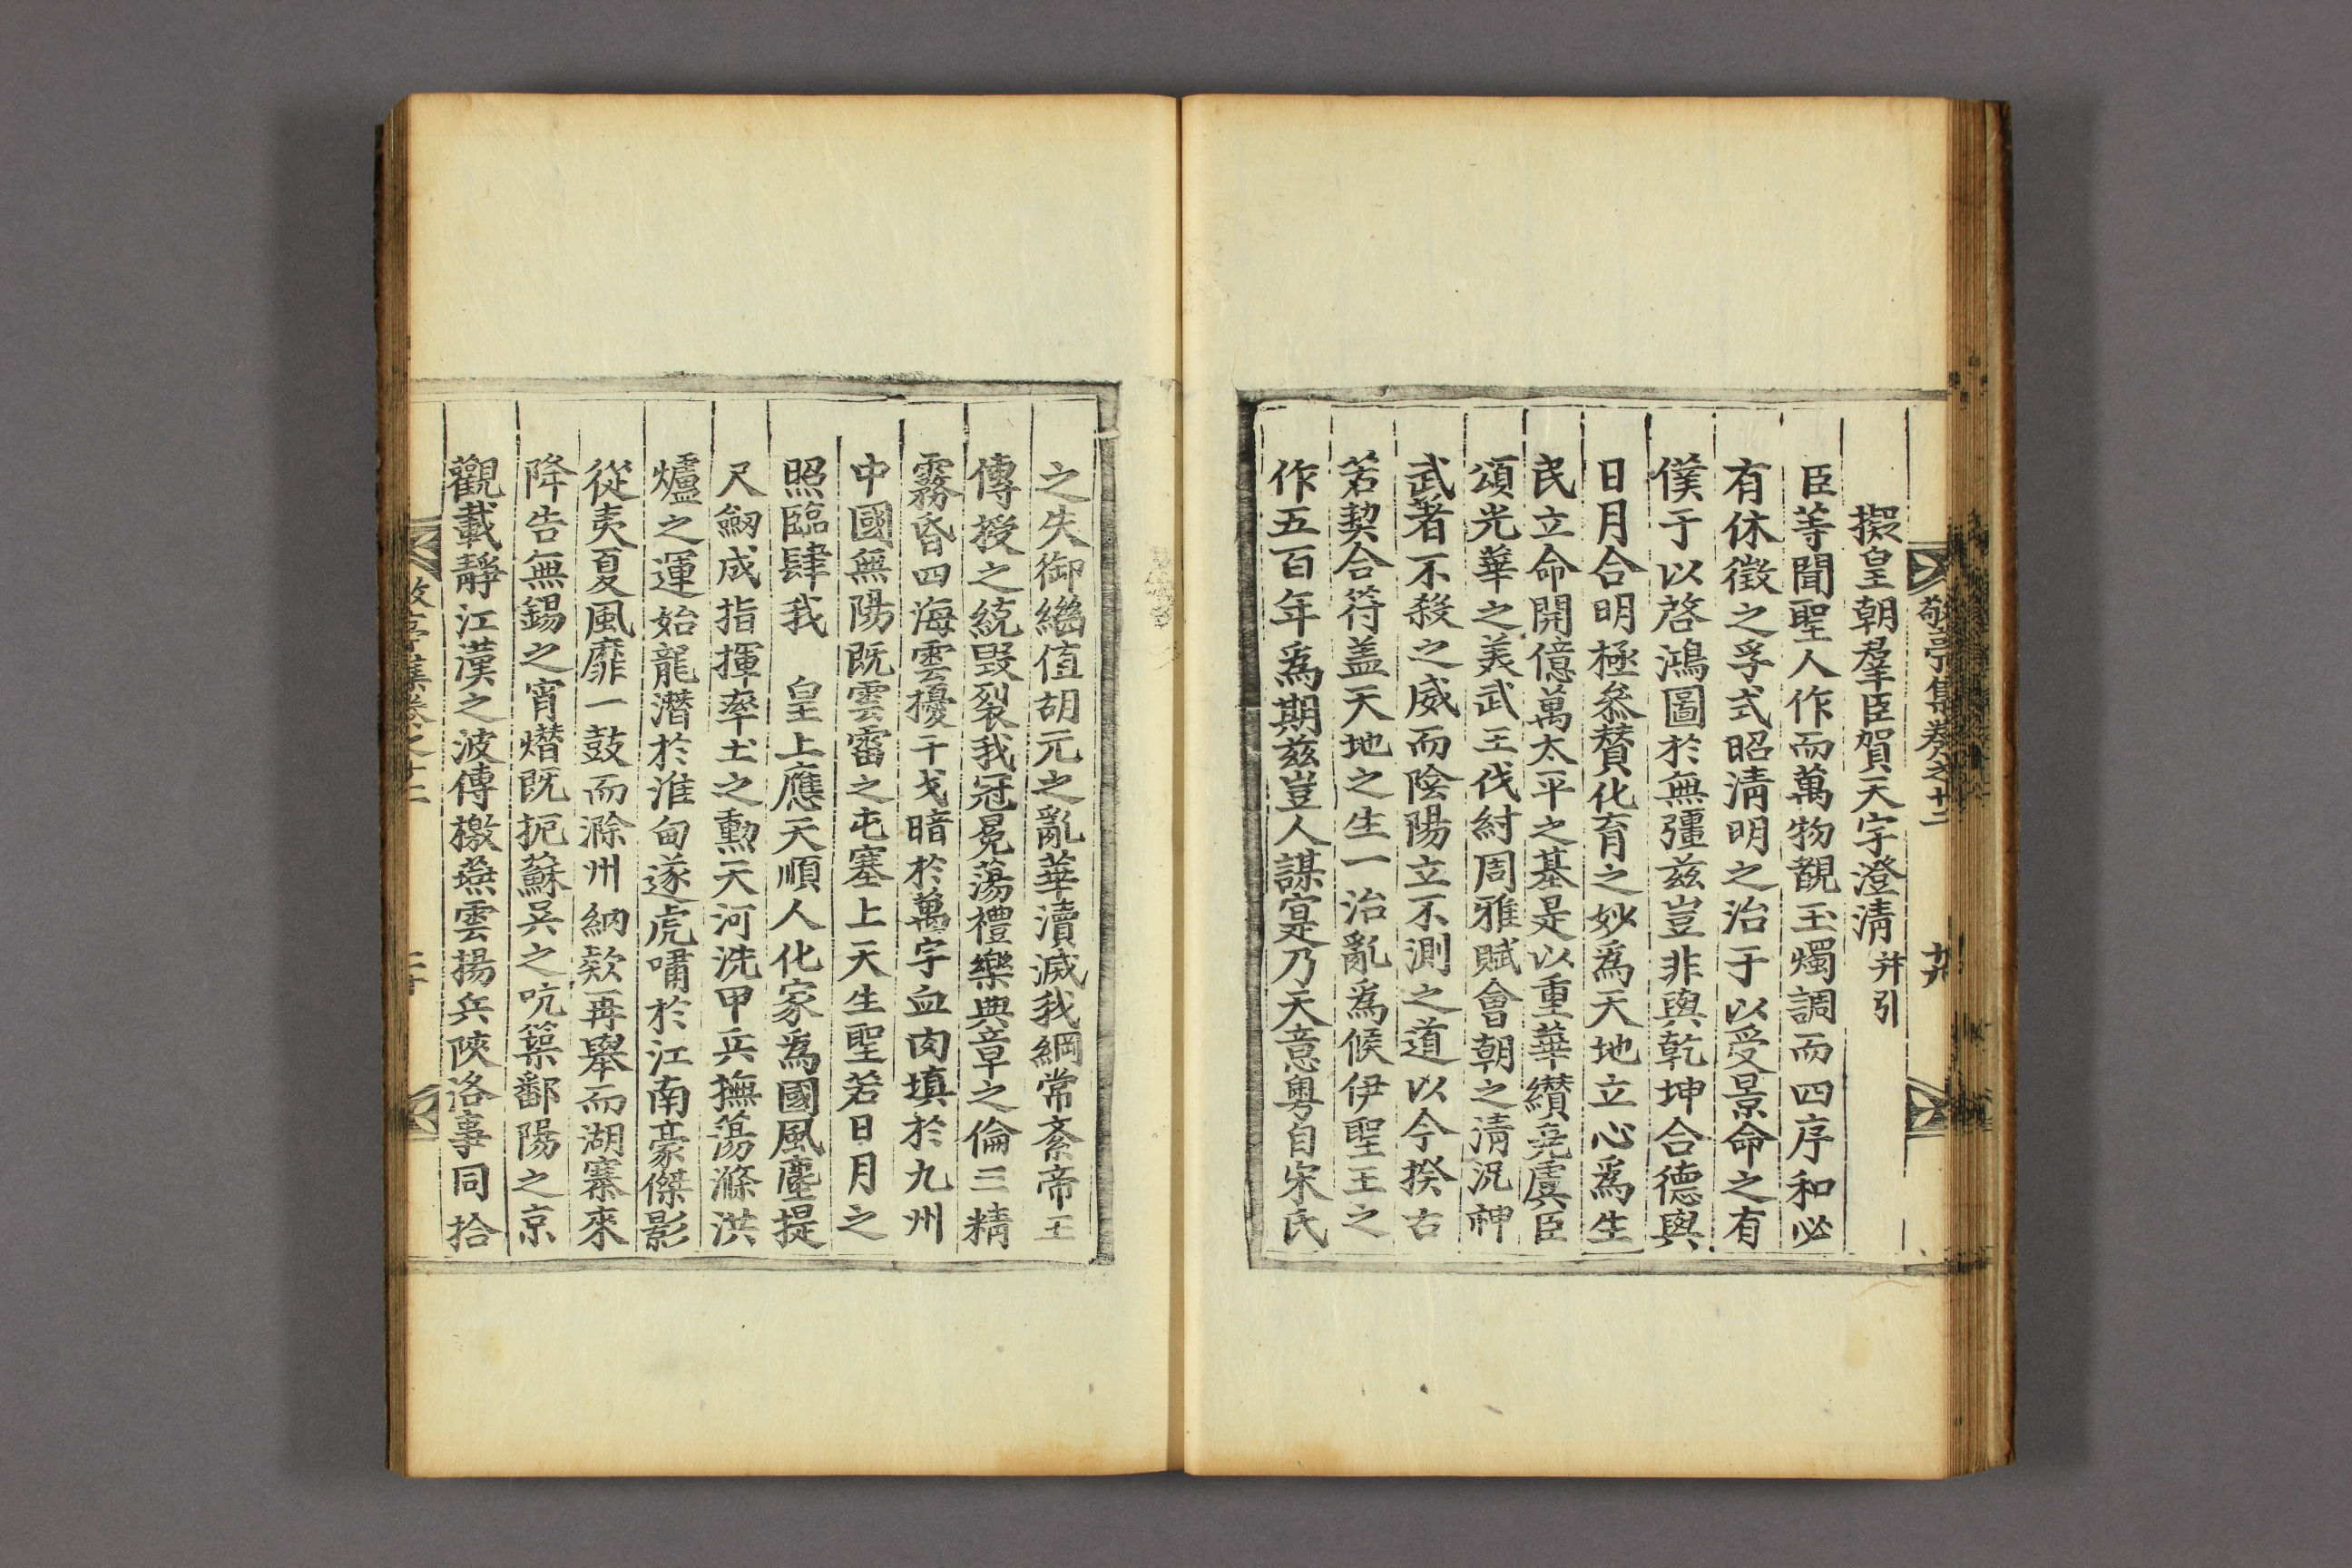 敬亭集卷之十二
十九
擬皇朝羣臣賀天宇澄淸 幷引
臣等聞聖人作而萬物覩玉燭調而四序和必
有休徵之孚式昭淸明之治于以受景命之有
僕于以啓鴻圖於無彊玆豈非與乾坤合德與
日月合明極叅賛化育之妙爲天地立心爲生
民立命開億萬太平之基是以重華纘堯虞臣
頌光華之美武王伐紂周雅賦會朝之淸況神
武著不殺之威而陰陽立不測之道以今揆古
若契合符盖天地之生一治亂爲候伊聖王之
作五百年爲期玆豈人謀寔乃天意粤自宋氏
之失御繼值胡元之亂華瀆滅我綱常紊帝王
傳授之統毁裂我冠冕蕩禮樂典章之倫三精
霧昏四海雲擾干戈暗於萬宇血肉塡於九州
中國無陽旣雲雷之屯塞上天生聖若日月之
照臨肆我 皇上應天順人化家爲國風塵提
尺劒成指揮率土之勳天河洗甲兵撫蕩滌洪
爐之運始龍潛於淮甸遂虎嘯於江南豪傑影
從夷夏風靡一鼓而滁州納欵再擧而湖寨來
降告無錫之宵熸旣扼蘇吳之吭築鄱陽之京
觀載靜江漢之波傳檄燕雲揚兵陝洛事同拾
亭集卷之十二
二十